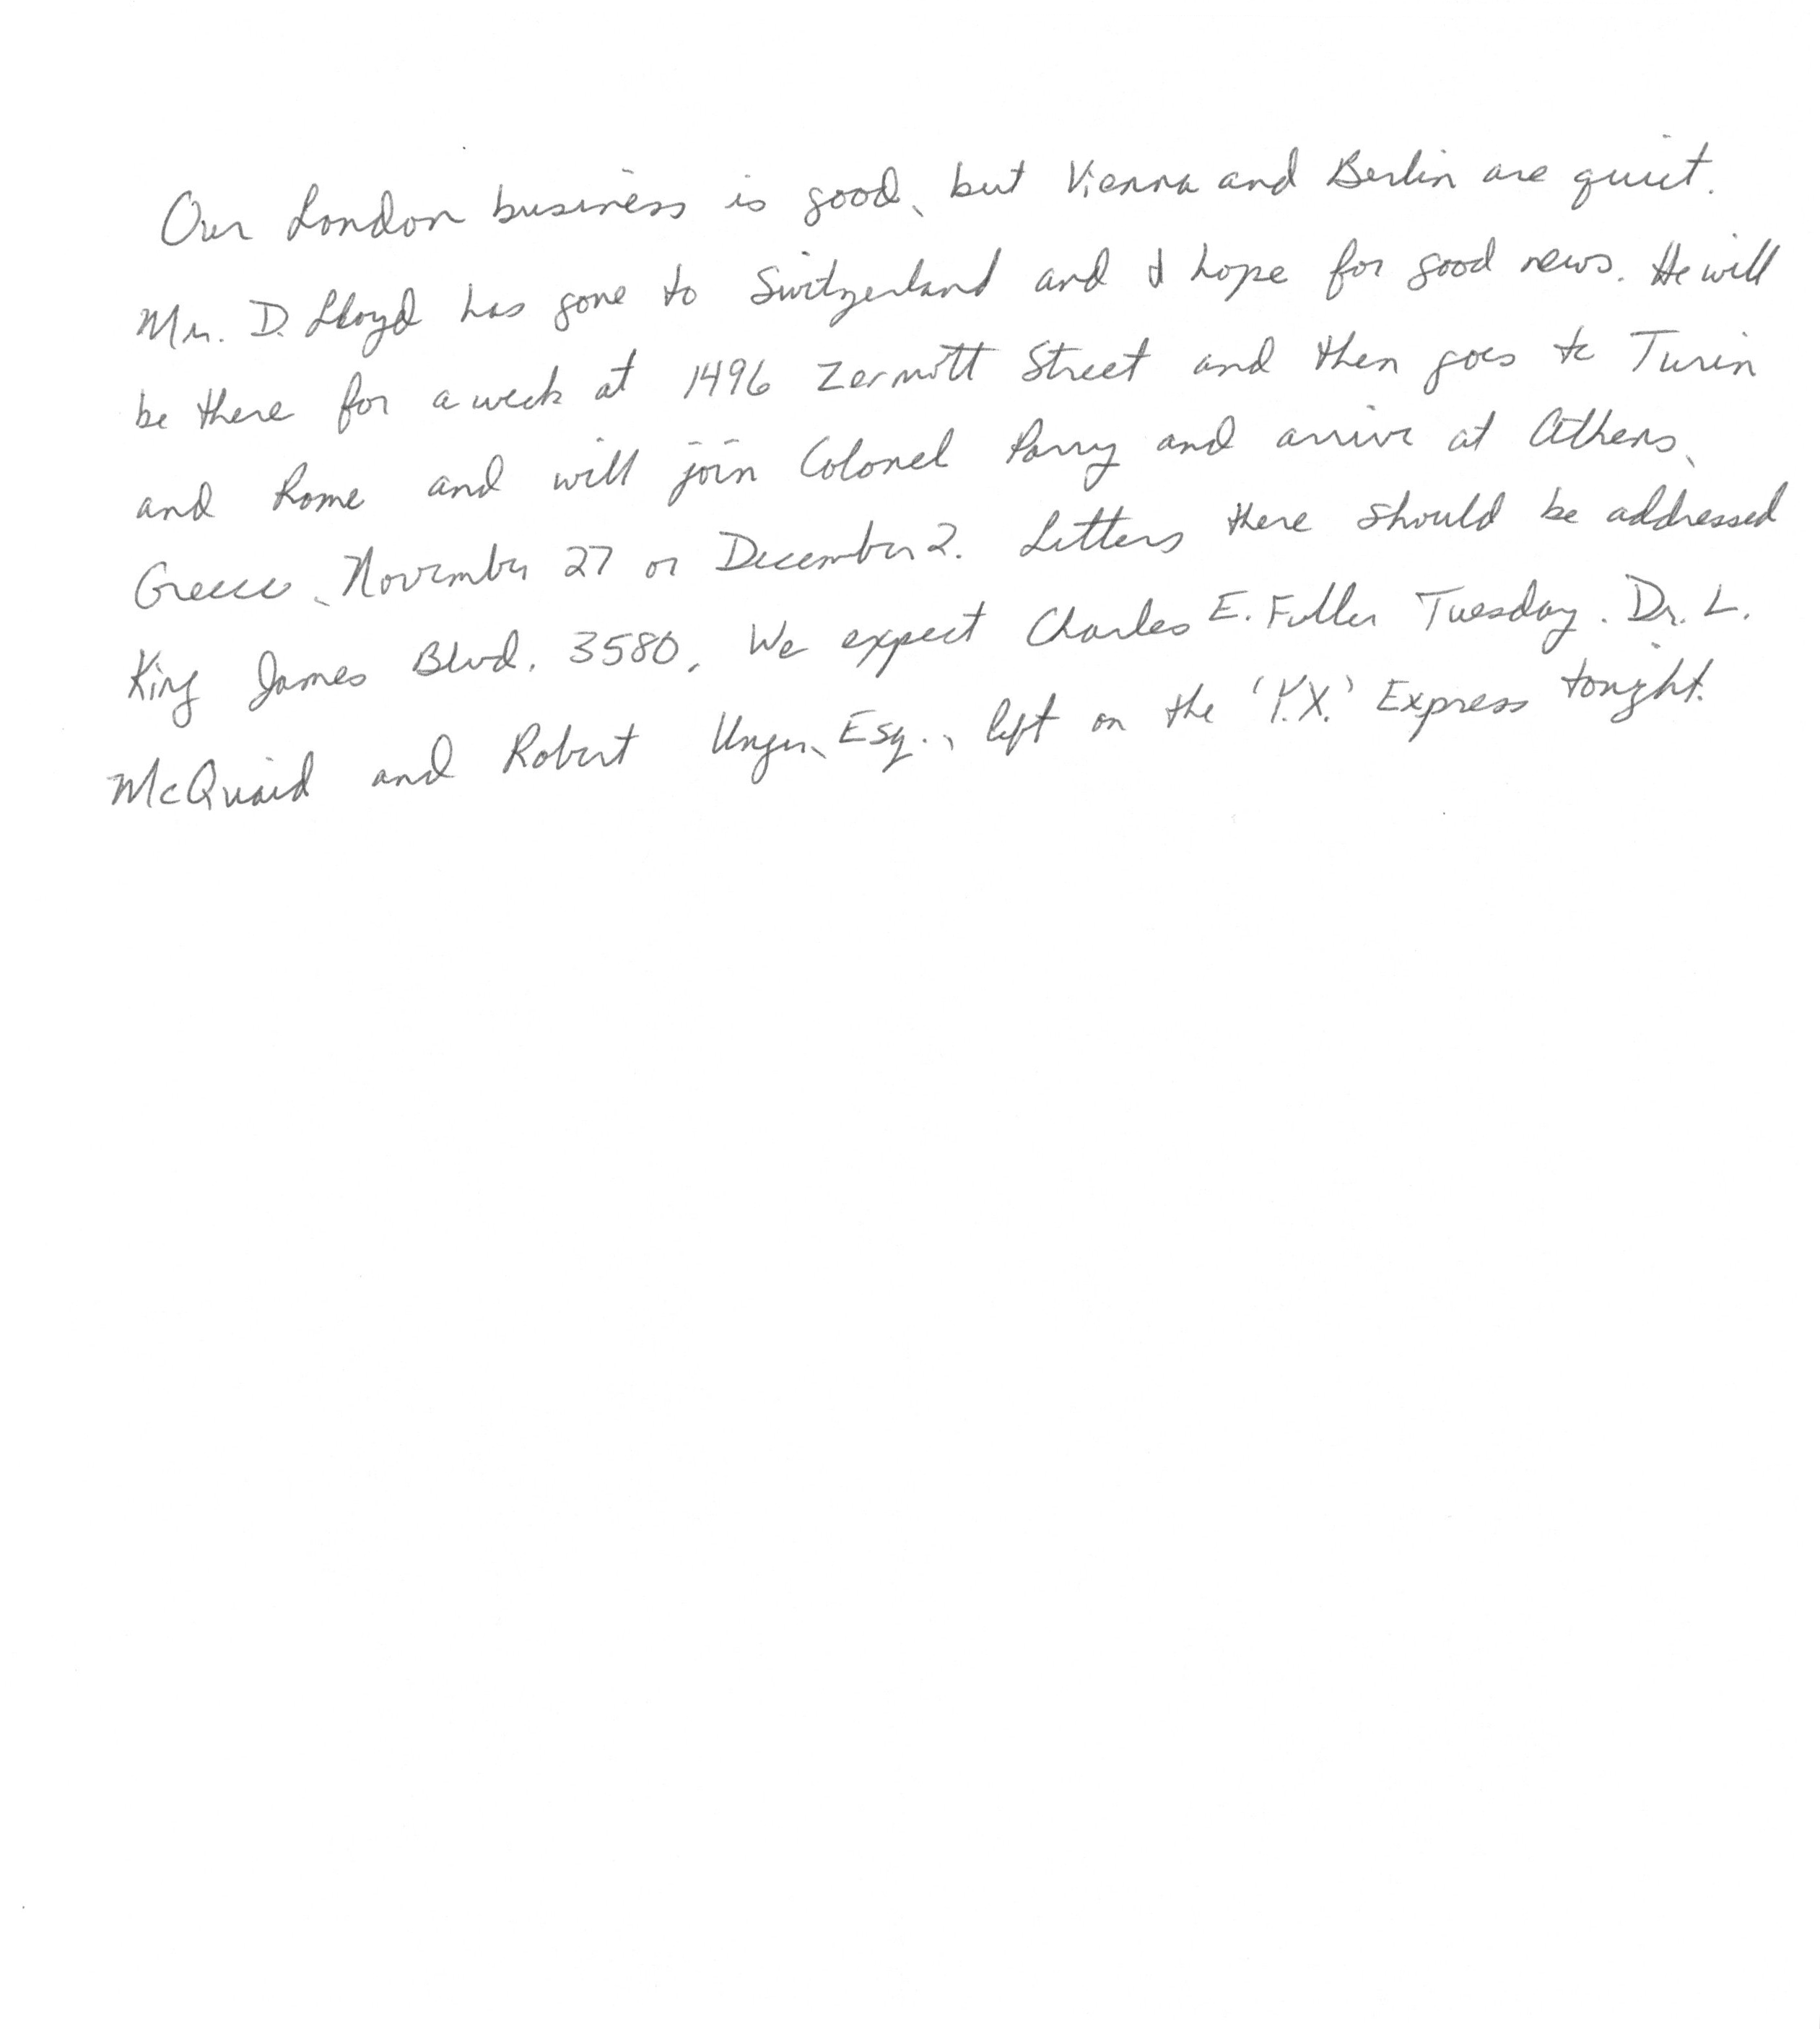 Our London business is good, but Vienna and Berlin are quiet.
Mr. D. Lloyd has gone to Switzerland and I hope for good news. He will
be there for a week at 1496 Zermott Street and then goes to Turin
and Rome and will join Colonel Parry and arrive at Athens,
Greece, November 27 or December 2. Letters there should be addressed
King James Blvd. 3580. We expect Charles E. Fuller Tuesday. Dr. L.
McQuaid and Robert Unger, Esq., left on the 'Y.X.' Express tonight.